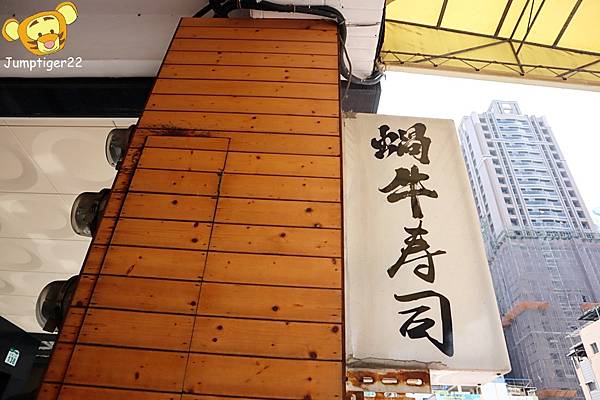 Jumptiger22
蝸牛寿司